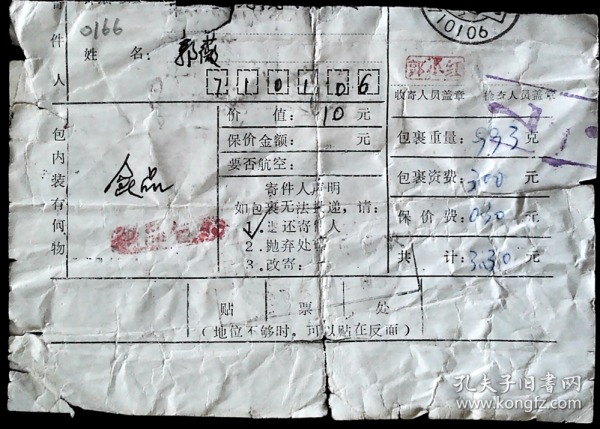 寄件人
0166
姓 名：郭薇
710106
10106
郭小红
收寄人员盖章 检查人员盖章
包内装有何物
食品
价 值：10 元
保价金额： 元
要否航空：
寄件人声明
如包裹无法投递，请：
1.退还寄件人
2.抛弃处理
3.改寄：
包裹重量：993 克
包裹资费：3.00 元
保价费：0.30 元
共 计：3.30 元
贴 票 处
（地位不够时，可以贴在反面）
孔夫子旧书网
www.kongfz.com